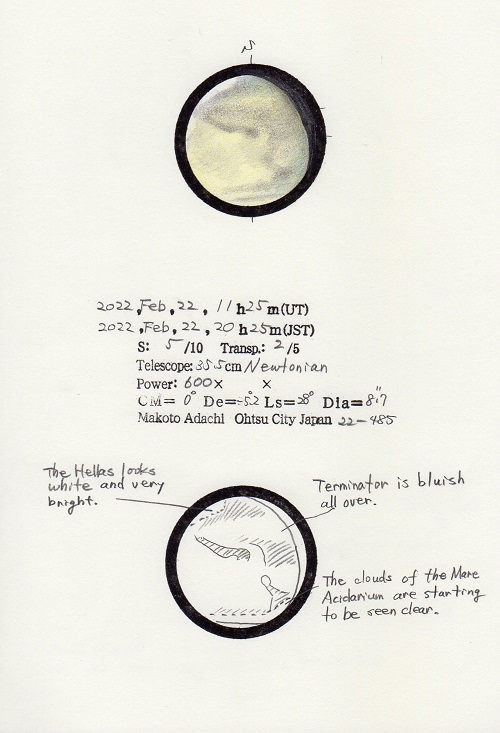 N
2022, Feb, 22, 11h25m(UT)
2022, Feb, 22, 20h25m(JST)
S: 5/10 Transp.: 2/5
Telescope: 35.5cm Newtonian
Power: 600× ×
CM= 0° De=-5.2 Ls=28° Dia=8.7"
Makoto Adachi Ohtsu City Japan 22-485
The Hellas looks
white and very
bright.
Terminator is bluish
all over.
The clouds of the Mare
Acidarium are starting
to be seen clear.